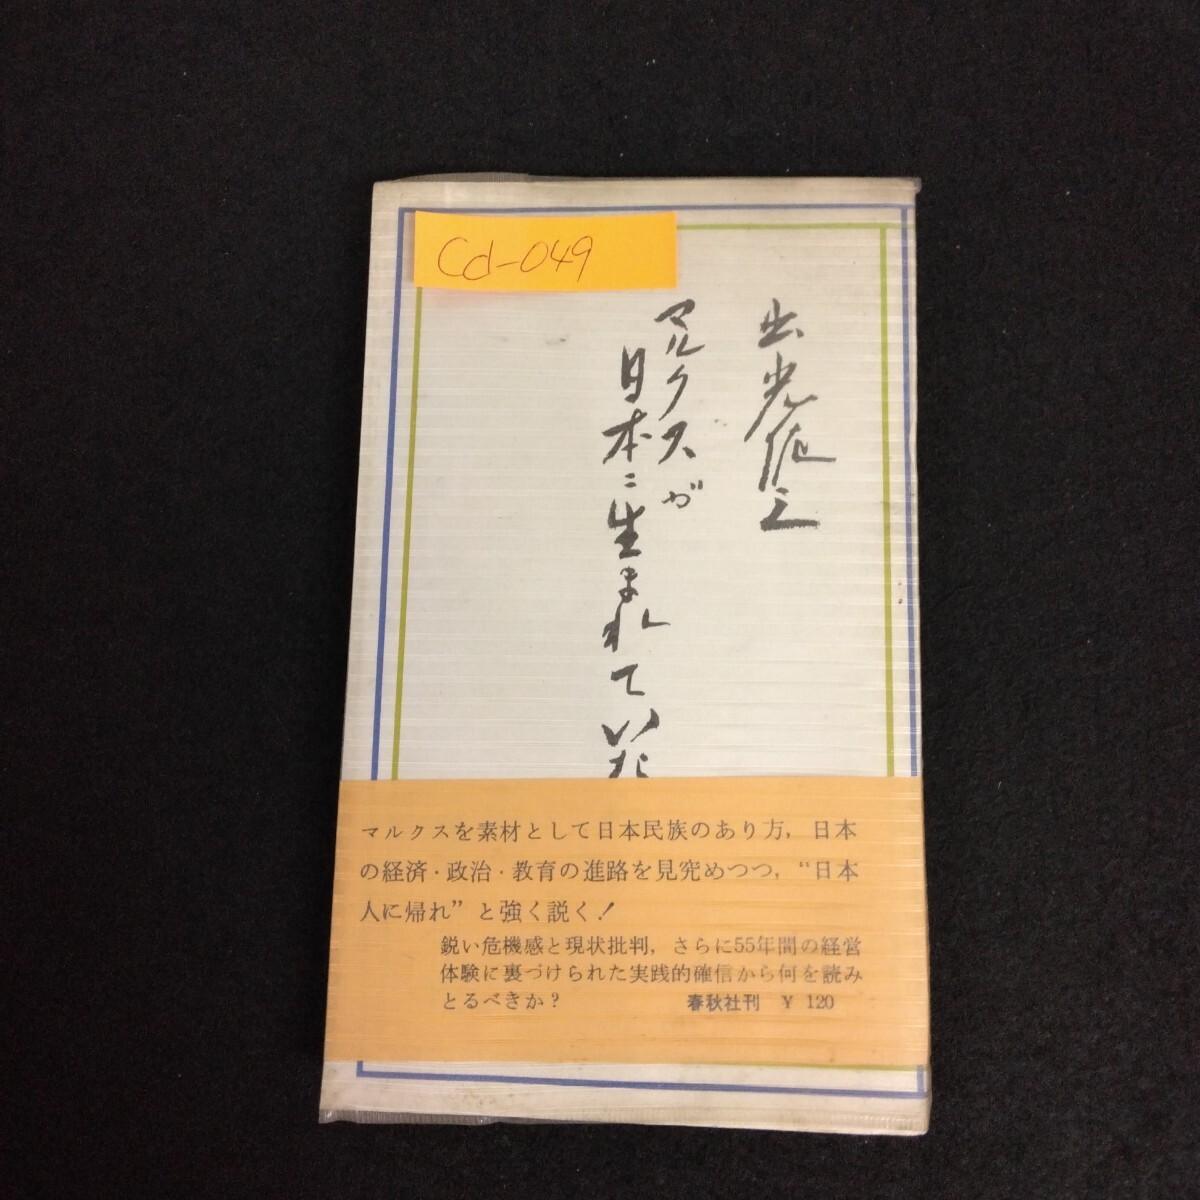 Cd-049
出光佐三
マルクスが
日本ニ生まれていた
マルクスを素材として日本民族のあり方，日本
の経済・政治・教育の進路を見究めつつ，“日本
人に帰れ”と強く説く！
鋭い危機感と現状批判，さらに55年間の経営
体験に裏づけられた実践的確信から何を読み
とるべきか？
春秋社刊 ￥120